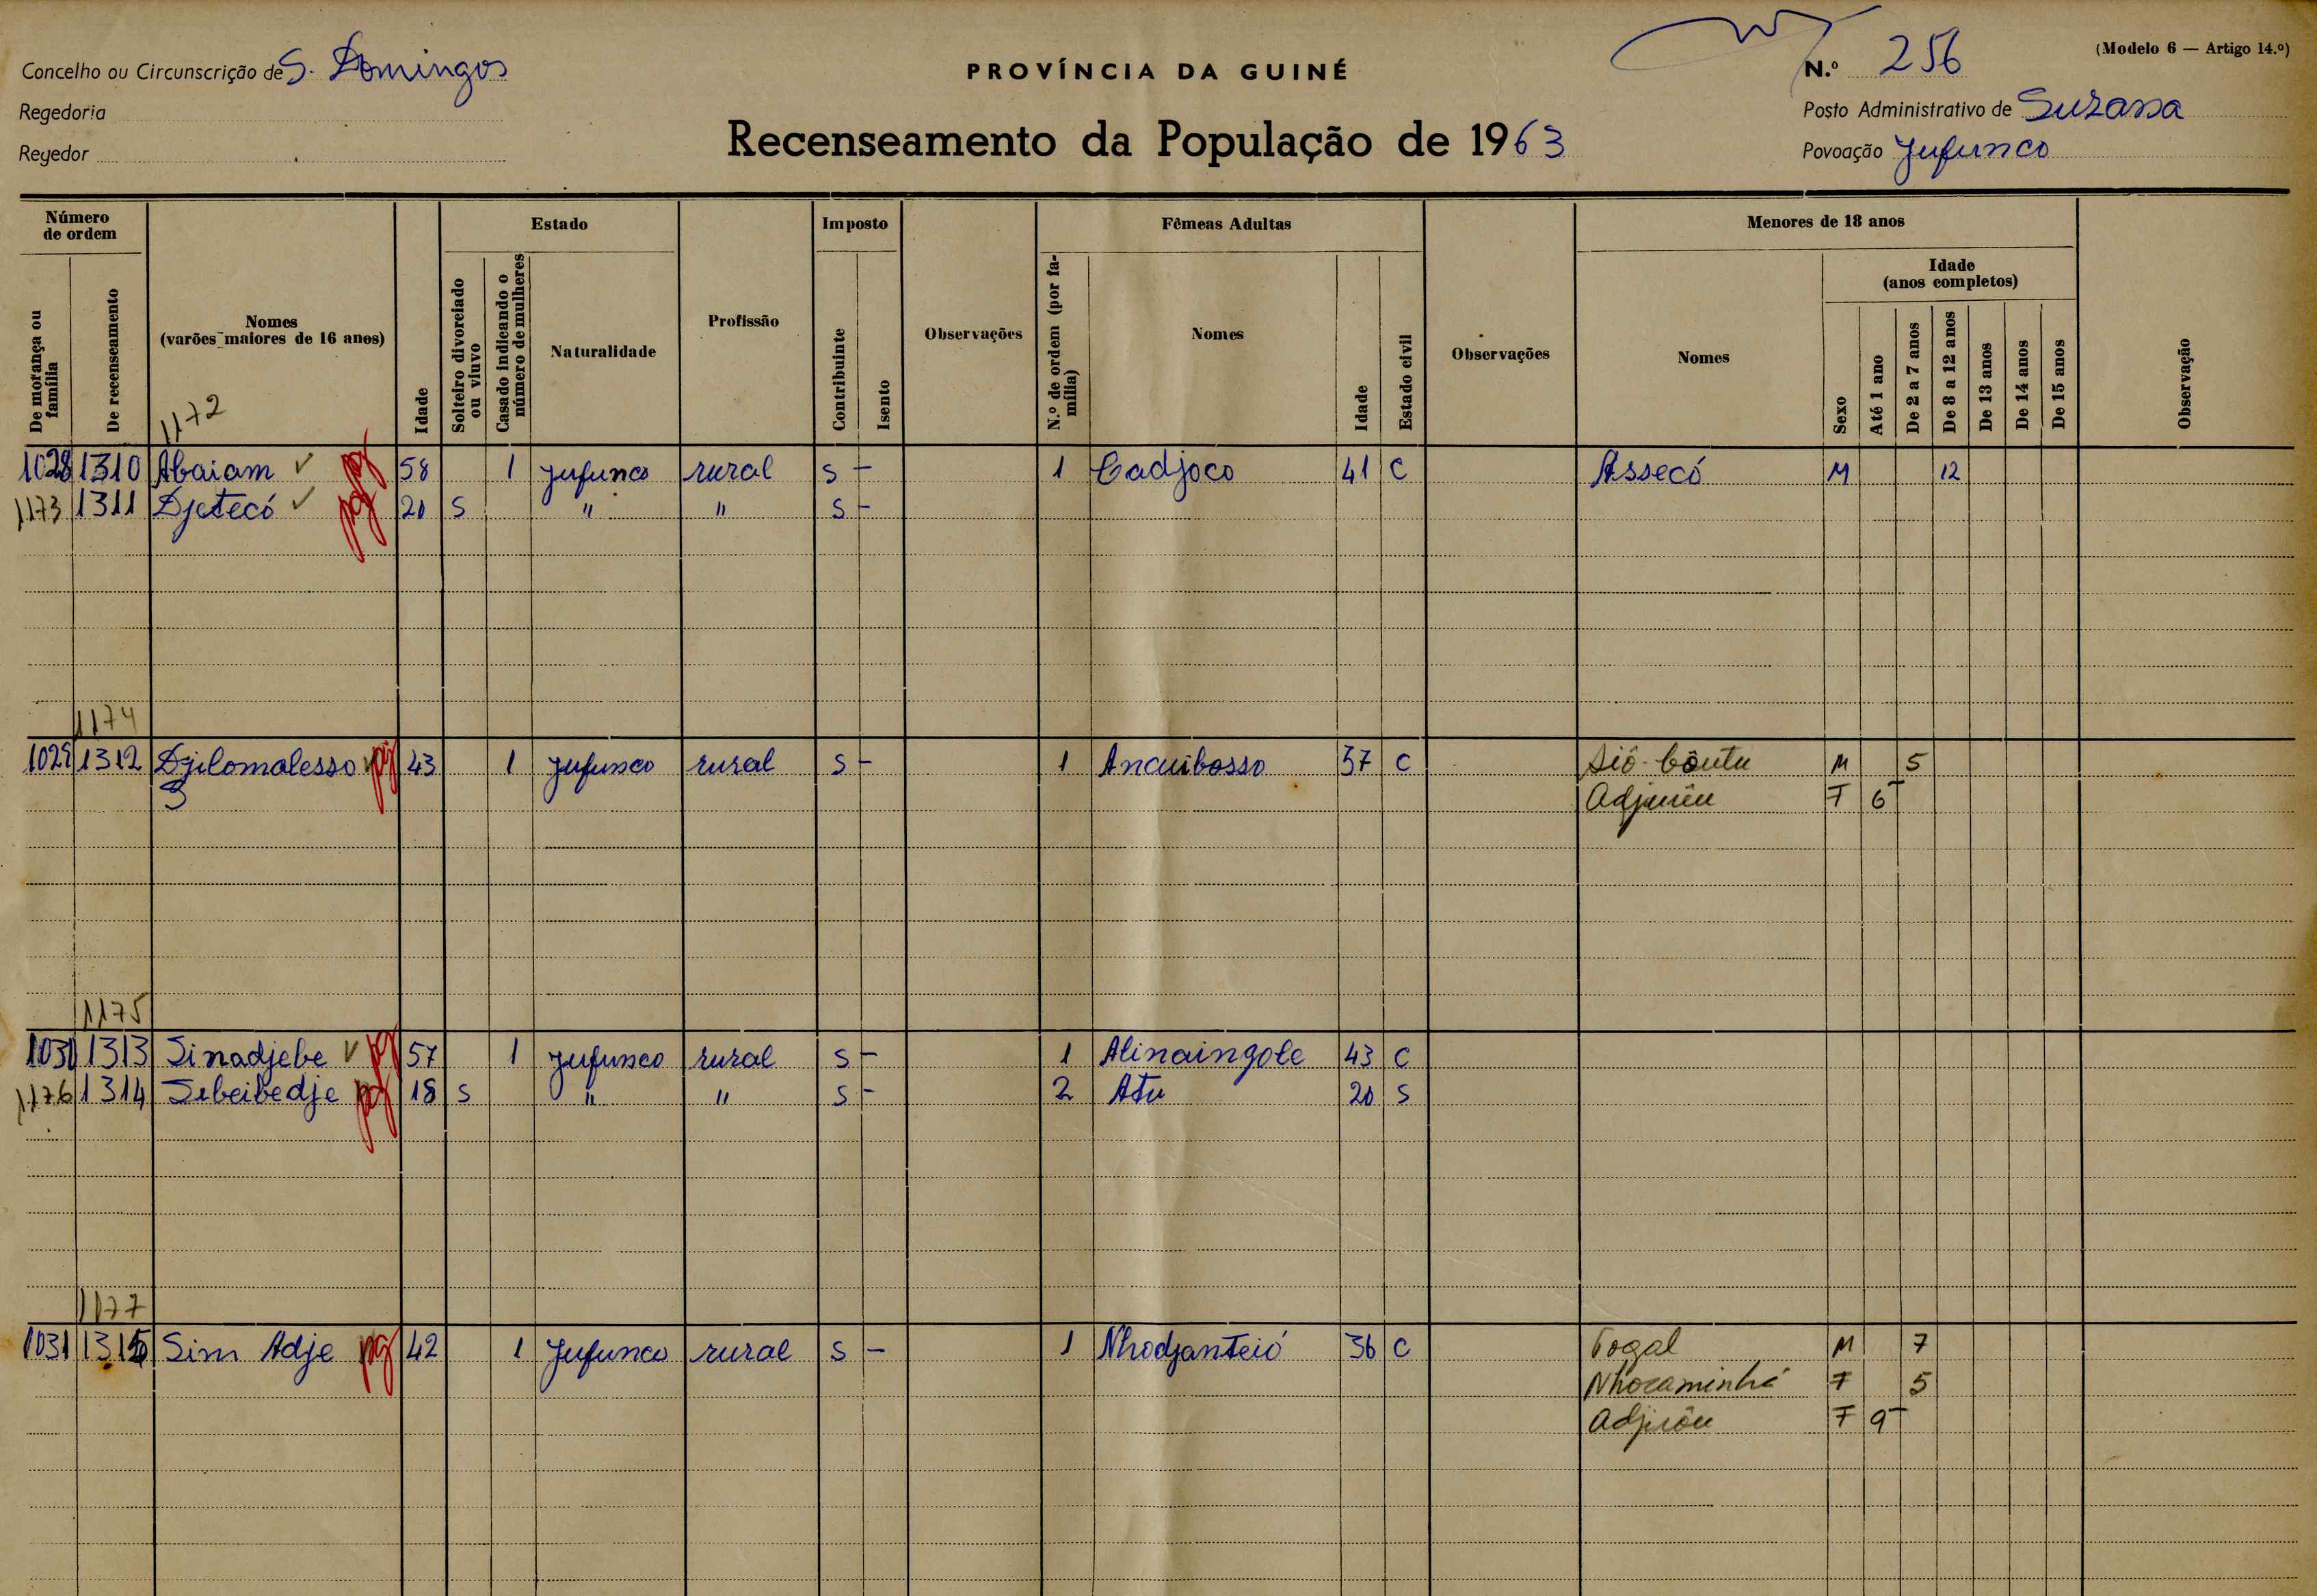 (Modelo 6 — Artigo 14.º)
Concelho ou Circunscrição de S. Domingos
PROVÍNCIA DA GUINÉ
N.º 256
Regedoria
Posto Administrativo de Suzana
Recenseamento da População de 1963
Regedor
Povoação Jufunco
Número de ordem
Estado
Imposto
Fêmeas Adultas
Menores de 18 anos
Idade (anos completos)
De morança ou família
De recenseamento
Nomes (varões maiores de 16 anos)
Idade
Solteiro divorciado ou viuvo
Casado indicando o número de mulheres
Naturalidade
Profissão
Contribuinte
Isento
Observações
N.º de ordem (por família)
Nomes
Idade
Estado civil
Observações
Nomes
Sexo
Até 1 ano
De 2 a 7 anos
De 8 a 12 anos
De 13 anos
De 14 anos
De 15 anos
Observação
1172
1028 1310 Abaiam pg 58 1 Jufunco rural s – 1 Cadjoco 41 C Assecó M 12
1173 1311 Djetecó pg 20 S " " s –
1174
1029 1312 Djilomalesso pg 43 1 Jufunco rural s – 1 Ancuibosso 37 C Sió-bôutu M 5
3 F 6
1175
1030 1313 Sinadjebe pg 57 1 Jufunco rural s – 1 Alinaingole 43 C
1176 1314 Sebeibedje pg 18 S " " s – 2 Atu 20 S
1177
1031 1315 Sim Adje pg 42 1 Jufunco rural s – 1 Nhodjanteió 36 C Togal M 7
Nhocaminhá F 5
F 9